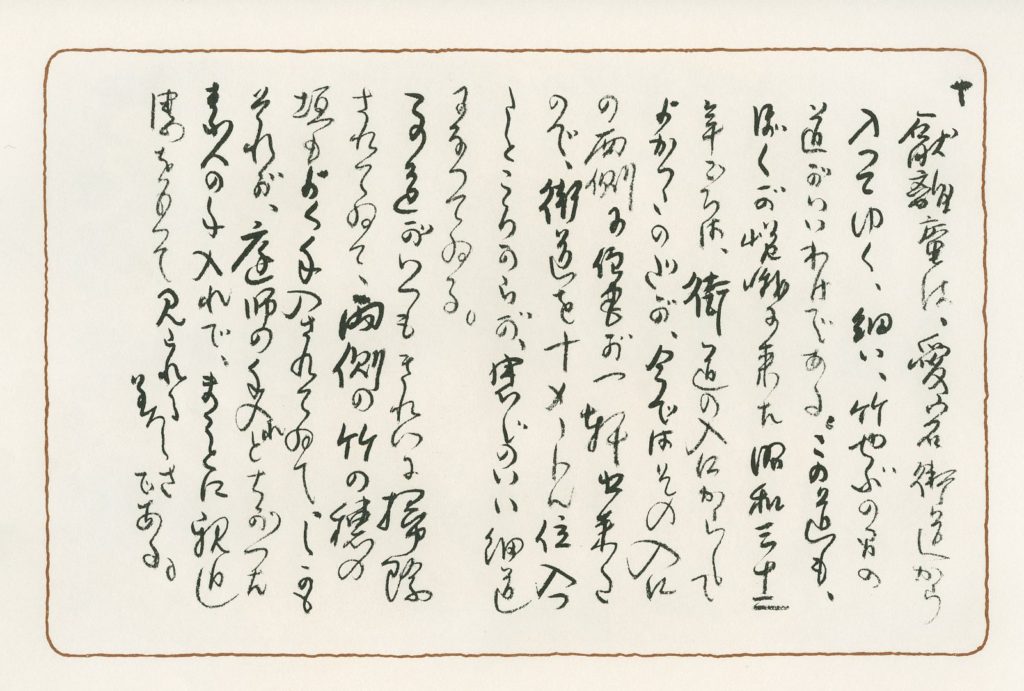 厭離庵は、愛宕街道から
入ってゆく、細い、竹やぶの間の
道がいいわけである。この道も、
ぼくが嵯峨に来た昭和三十二
年ごろは、街道の入口からして
よかったのだが、今ではその入口
の両側に住宅が一軒出来た
ので、街道を十メートル位入っ
たところからが、感じのいい細道
になっている。
この道がいつもきれいに掃除
されてゐて、両側の竹の穂の
垣もよく手入されてゐて、しかも
それが、庭師の手入れとちがった
素人の手入れで、まことに親近
感をもって見られる
美しさ
である。